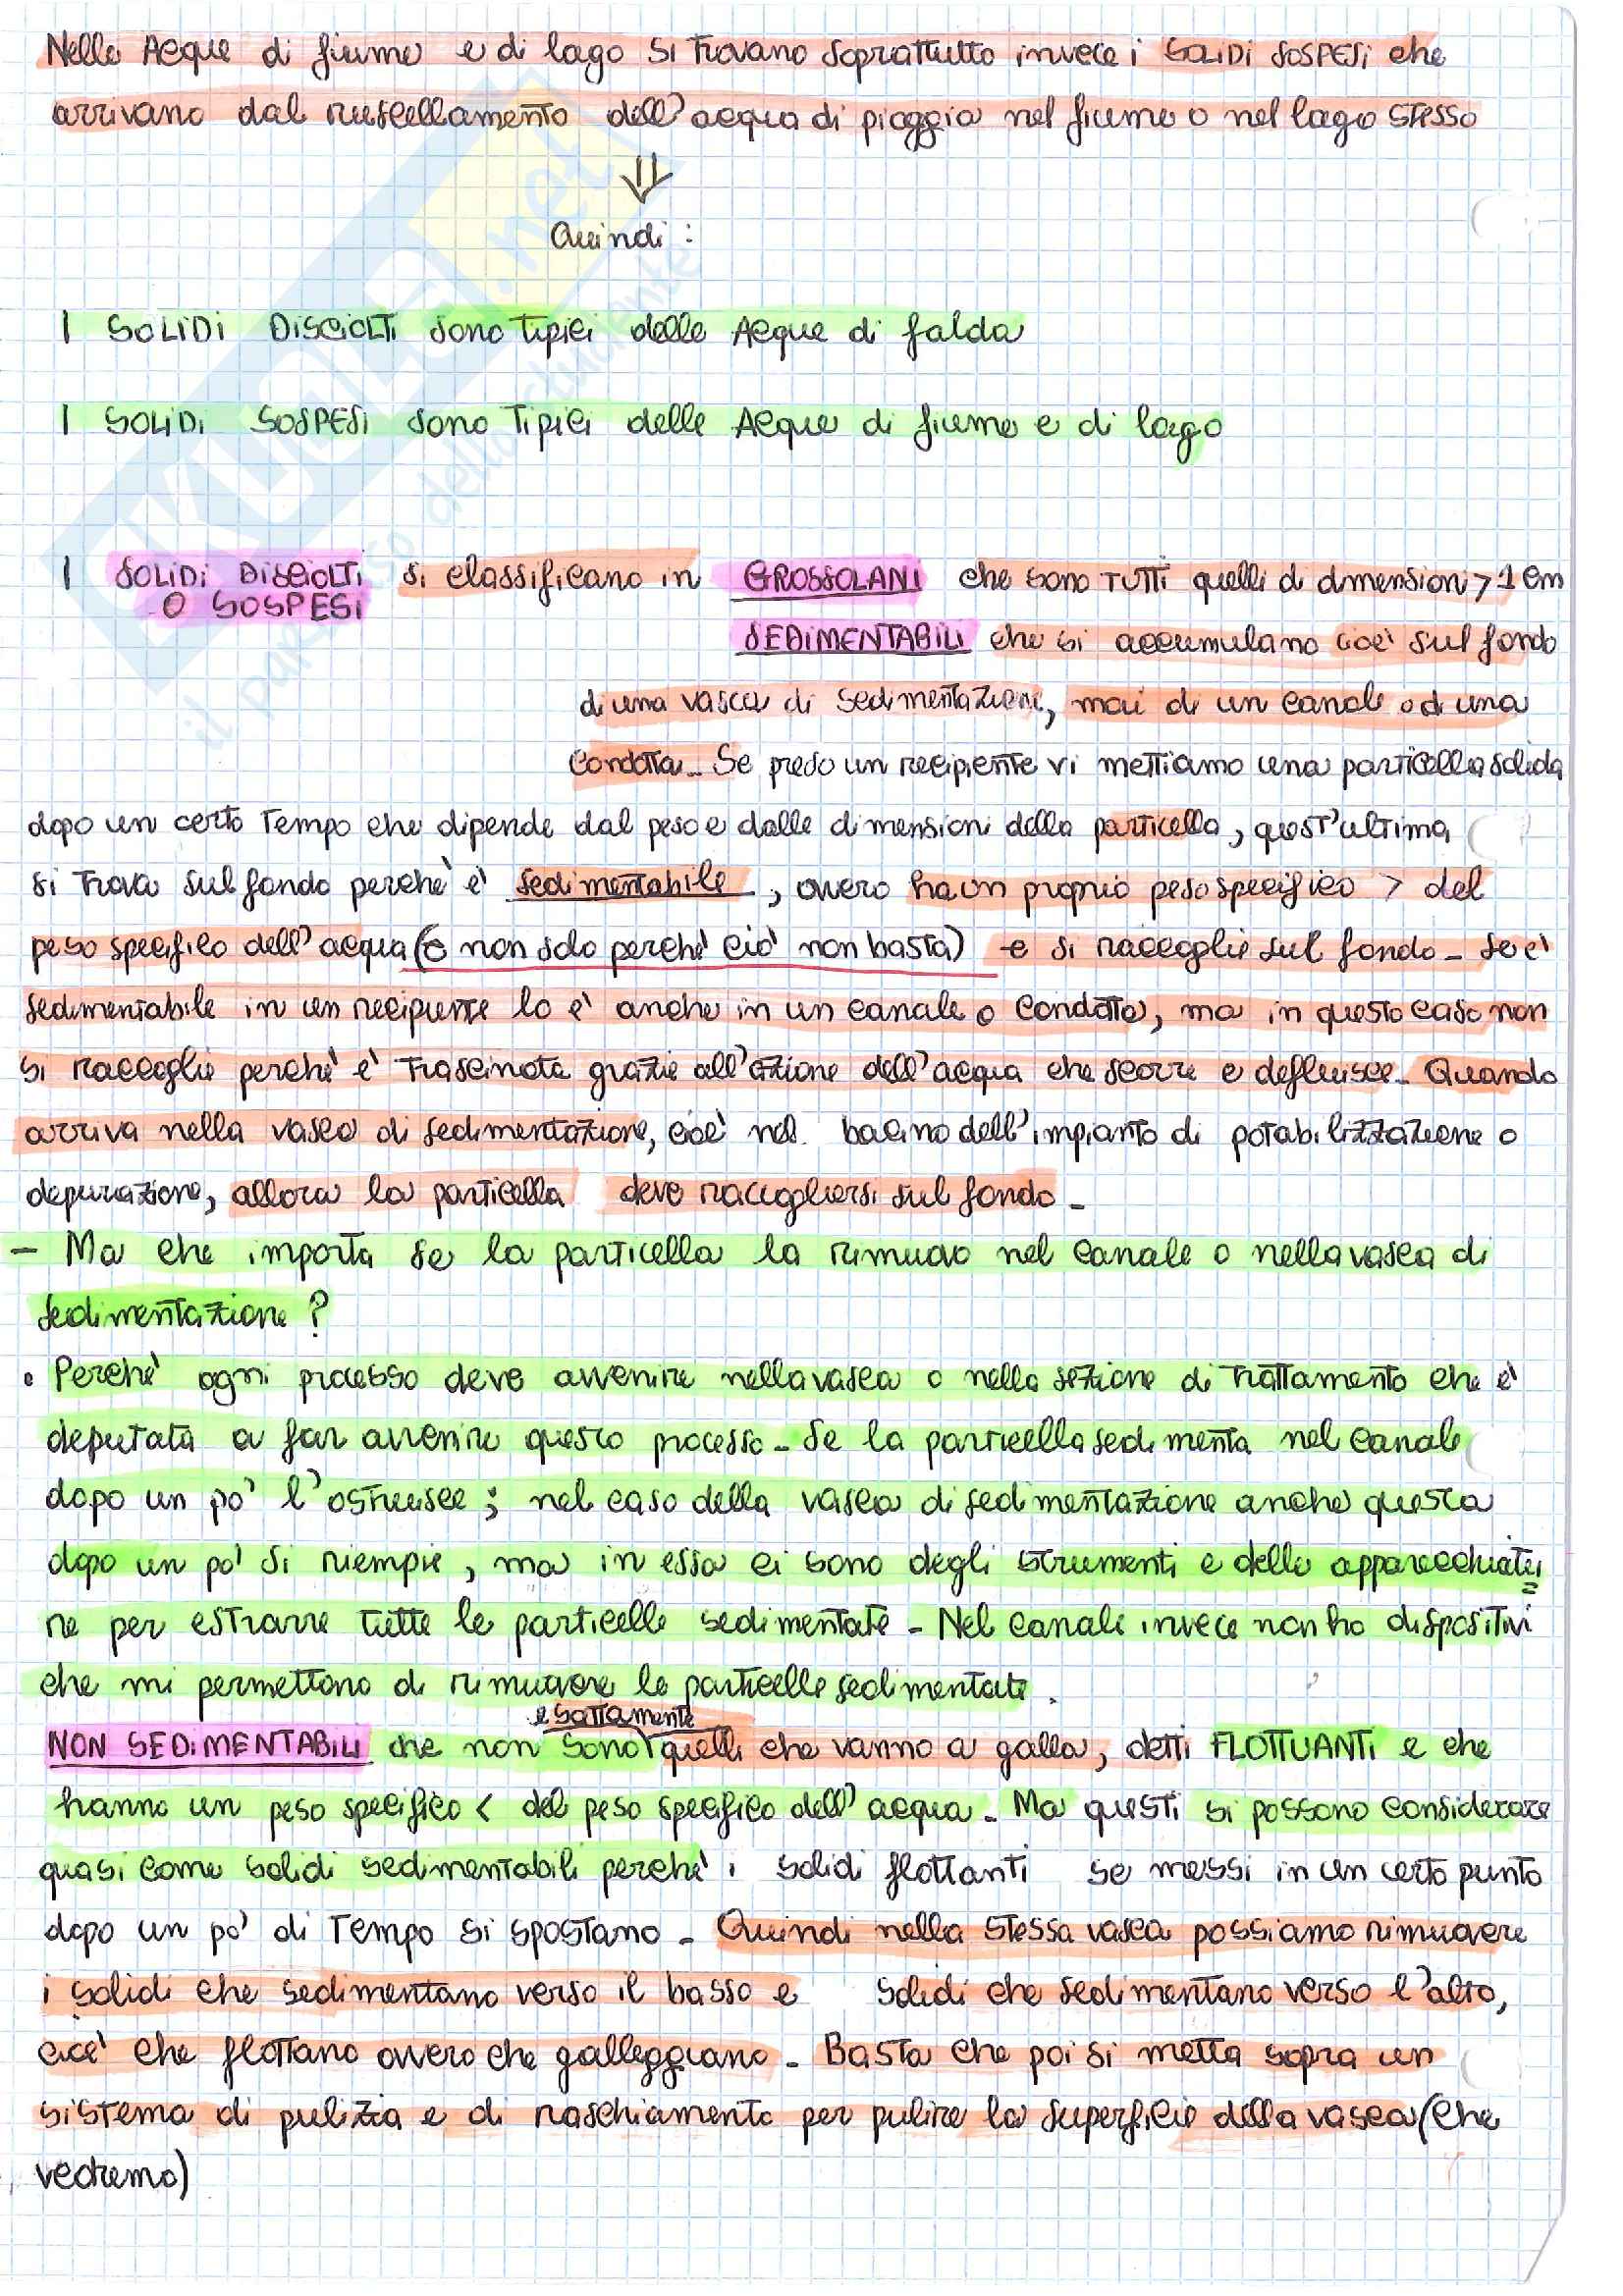 Nelle Acque di fiume e di lago si trovano soprattutto invece i SOLIDI SOSPESI che
arrivano dal ruscellamento dell'acqua di pioggia nel fiume o nel lago stesso
⇓
Quindi:
I SOLIDI DISCIOLTI sono tipici delle Acque di falda
I SOLIDI SOSPESI sono tipici delle Acque di fiume e di lago
I SOLIDI DISCIOLTI si classificano in GROSSOLANI che sono TUTTI quelli di dimensioni > 1 cm
O SOSPESI
SEDIMENTABILI che si accumulano cioè sul fondo
di una vasca di sedimentazione, mai di un canale o di una
condotta_ Se preso un recipiente vi mettiamo una particella solida
dopo un certo tempo che dipende dal peso e dalle dimensioni della particella, quest'ultima
si trova sul fondo perchè è sedimentabile, ovvero ha un proprio peso specifico > del
peso specifico dell'acqua (e non solo perchè ciò non basta) e si raccoglie sul fondo_ se è
sedimentabile in un recipiente lo è anche in un canale o condotta, ma in questo caso non
si raccoglie perchè è trascinata grazie all'azione dell'acqua che scorre e defluisce_ Quando
arriva nella vasca di sedimentazione, cioè nel bacino dell'impianto di potabilizzazione o
depurazione, allora la particella deve raccogliersi sul fondo_
- Ma che importa se la particella la rimuovo nel canale o nella vasca di
sedimentazione?
• Perchè ogni processo deve avvenire nella vasca o nella sezione di trattamento che è
deputata a far avvenire questo processo_ Se la particella sedimenta nel canale
dopo un po' l'ostruisce; nel caso della vasca di sedimentazione anche questa
dopo un po' si riempie, ma in essa ci sono degli strumenti e delle apparecchiatu=
re per estrarre tutte le particelle sedimentate_ Nel canale invece non ho dispositivi
che mi permettono di rimuovere le particelle sedimentate.
esattamente
NON SEDIMENTABILI che non sono quelli che vanno a galla, detti FLOTTUANTI e che
hanno un peso specifico < del peso specifico dell'acqua_ Ma questi si possono considerare
quasi come solidi sedimentabili perchè i solidi flottanti se messi in un certo punto
dopo un po' di tempo si spostano_ Quindi nella stessa vasca possiamo rimuovere
i solidi che sedimentano verso il basso e solidi che sedimentano verso l'alto,
cioè che flottano ovvero che galleggiano_ Basta che poi si metta sopra un
sistema di pulizia e di raschiamento per pulire la superficie della vasca (che
vedremo)